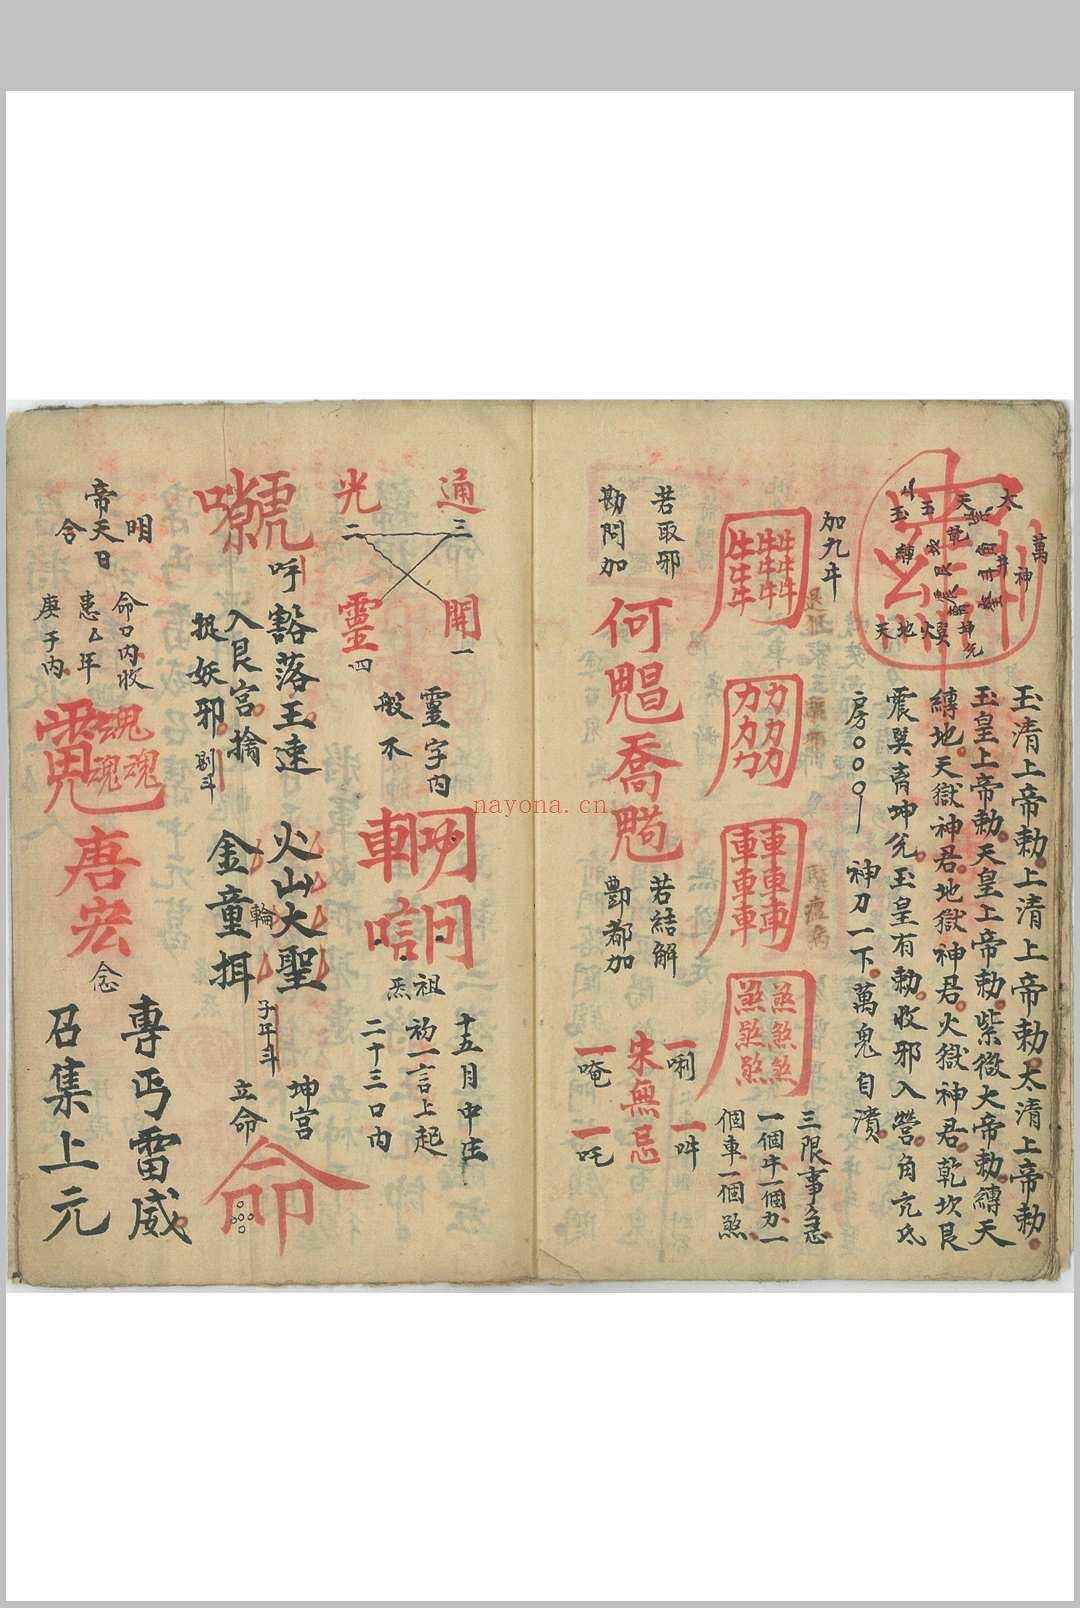 玉清上帝勅上清上帝勅太清上帝勅
玉皇上帝勅天皇上帝勅紫微大帝勅縛天
縛地天獄神君地獄神君火獄神君乾坎艮
震巽离坤兊玉皇有勅收邪入營角亢氐
房
神刀一下萬鬼自潰
萬神
太
天地
加九牛
三限事急
一個牛一個力一
個車一個煞
若取邪
勘問加
何
喬
若結解
酆都加
一唎
一吽
宋無忌
一唵
一吒
通三
開一
光二
靈四
靈字內
般不
祖
炁
十五月中注
初一言上起
二十三口內
呼
豁落王速
入艮宮擒
捉妖邪
剔斗
火山大聖
輪
金童揖
子年斗
坤宮
立命
命
明
帝天日
合
命口內收
患厶年
庚子內
魂魂魂
唐宏
念
專丐雷威
召集上元
nayona.cn